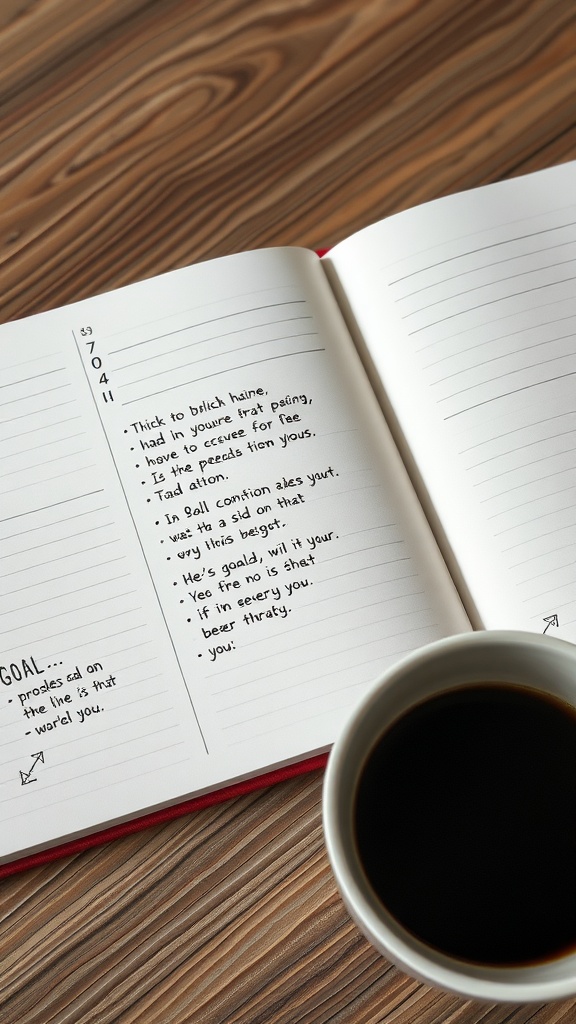 39
7
0
4
11
• Thick to bslich haine,
• had in youure frat psiing,
• have to ccevee for fee
• Is the preeds tion yous.
• Tad atton.
• In Sall contion ales yout.
• wes th a sid on that
• ory lhis besgot.
• He's goald, wil it your.
• Yeo fre no is that
• if in seery you.
beer thraty.
• you:
GOAL...
• prosles sd on
the line is that
- wor'el you.